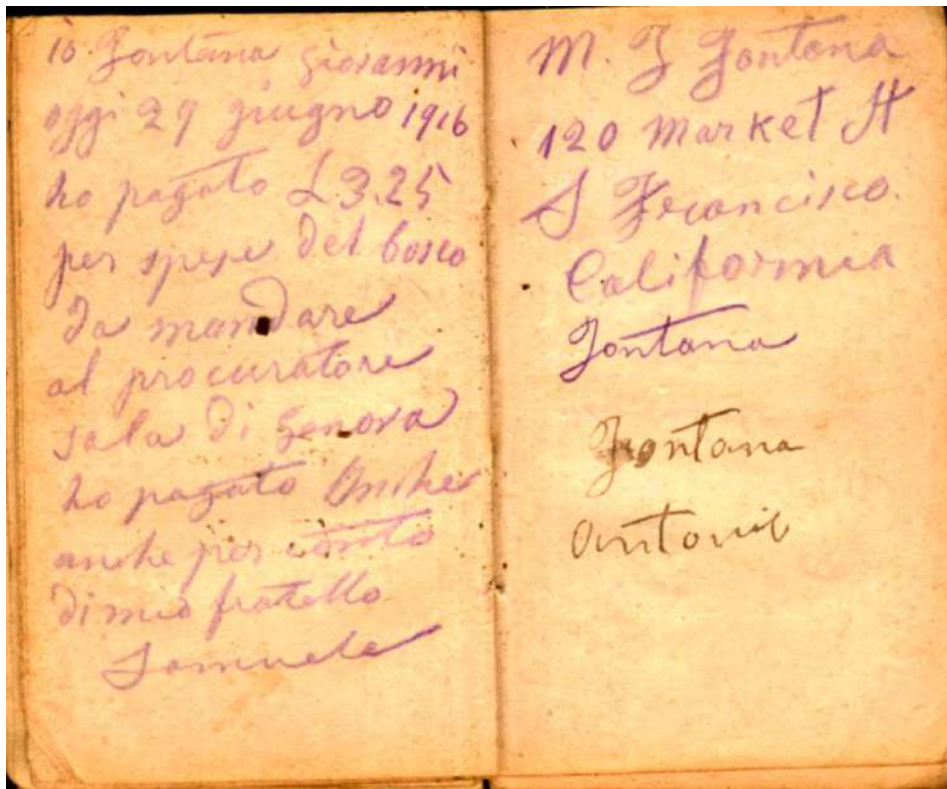 io Fontana giovanni
oggi 29 giugno 1916
ho pagato £ 3.25
per spese del bosco
da mandare
al procuratore
sala di Genova
ho pagato Anche
anche per conto
di mio fratello
Samuele
M. J Fontana
120 Market St
S Francisco.
California
Fontana
Fontana
Antonio